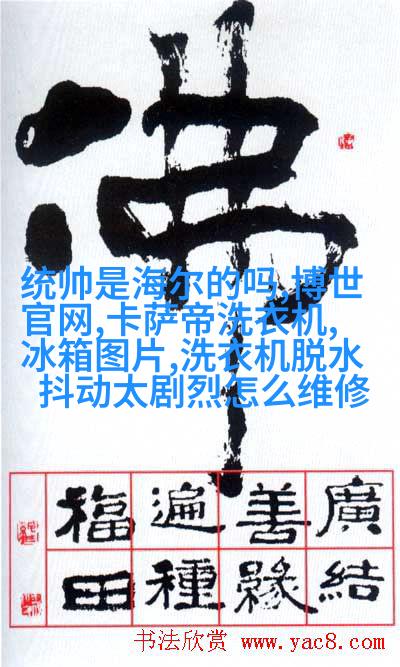 佛
统帅是海尔的吗,博世
官网,卡萨帝洗衣机,
冰箱图片,洗衣机脱水
抖动太剧烈怎么维修
廣結
善緣
遍種
福田
书法欣赏 www.yac8.com